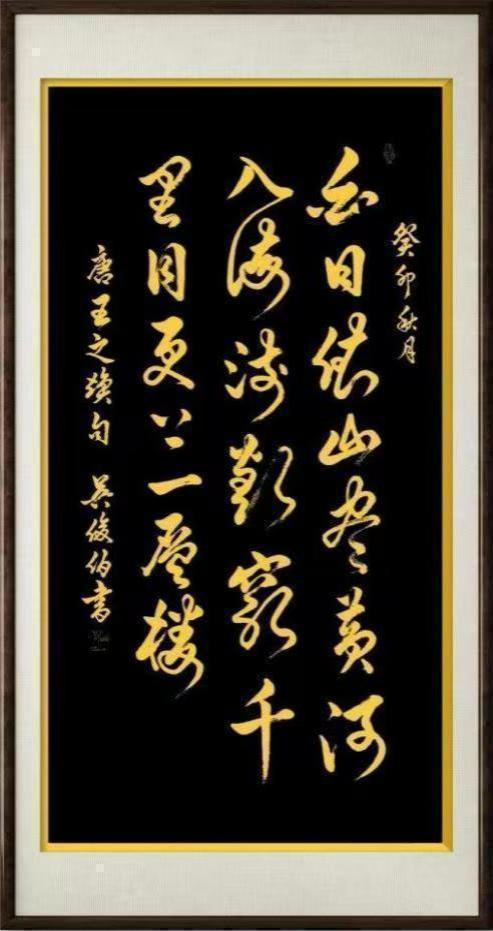 癸卯秋月
白日依山尽黄河
入海流欲窮千
里目更上一层楼
唐王之焕句 吴俊伯書